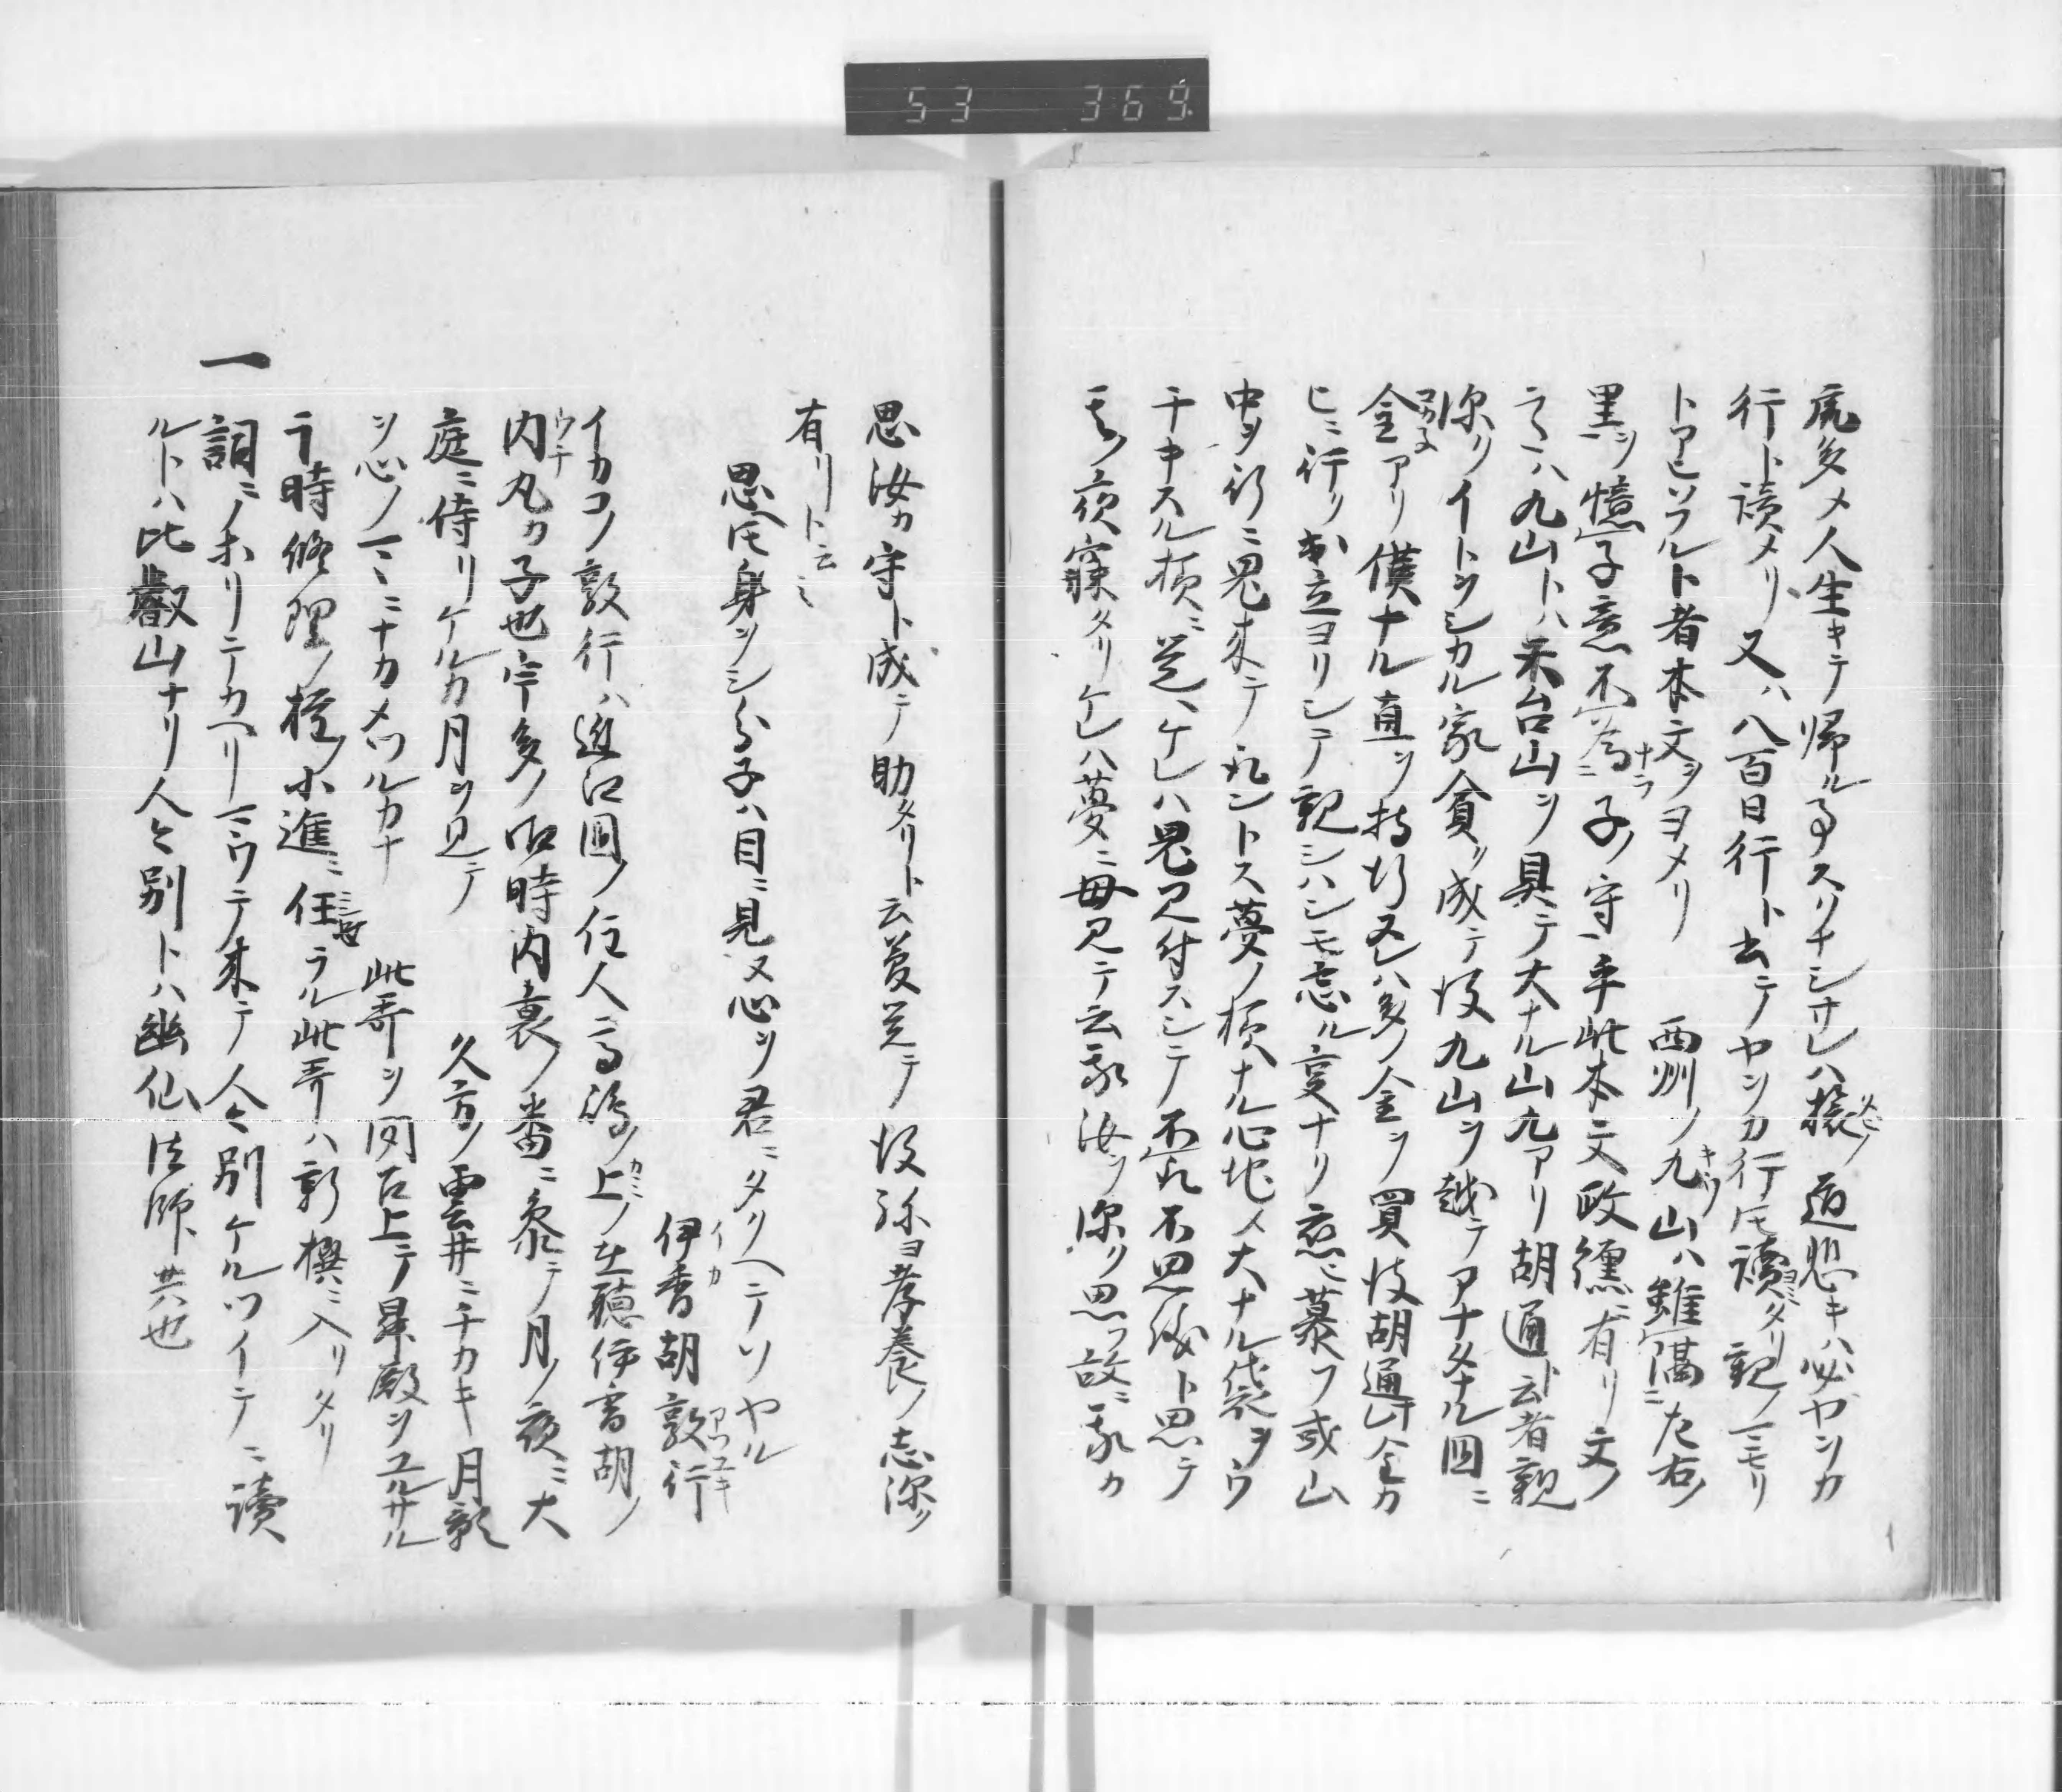 53 369
虎多メ人生キテ帰ル事スクナシサレハ猿ノ道悲キハ必ヤシカ
行ト読メリ又ハ八百日行ト去テヤシカ行トモ讀タリ親ノ守リ
トアヒソフルト者本文ヲヨメリ 西州ノ九山ハ雖隔左右ノ
里ヲ憶子意不為子ノ守乎此本文政纁ニ有リ文ノ
云ハ九山トハ天台山ヲ具テ大ナル山九アリ胡通ト云者親
深クイトヲシカル家貧ク成テ彼九山ヲ越テアナタナル国ニ
金アリ僕ナル直ヲ持行ヌレハ多ノ金ヲ買彼胡通此金カ
ヒニ行リ出立ヨリシテ親シハシモ忘ル事ナリ恋ヒ慕フ或山
中ヲ行ニ鬼来テ取ントス夢ノ様ナル心地メ大ナル袋ヲウ
チキスル様ニ覚ヘケレハ鬼見付スシテ不取不思儀ト思テ
其ノ夜寝タリケレハ夢ニ母見テ云我汝ヲ深ク思フ故ニ我カ
思汝カ守ト成テ助タリト云夢覚テ彼弥ヨ孝養ノ志深ク
有リト云々
思ヘトモ身ヲシ分子ハ目ニ見ヌ心ヲ君ニタクヘテソヤル
伊香胡敦行
イカコノ敦行ハ近江国ノ住人二高嶋ノ上ノ在聴伊香胡ノ
内丸カ子也宇多ノ御時内裏ノ番ニ参テ月ノ夜ニ大
庭ニ侍リケルカ月ヲ見テ 久方ノ雲井ニチカキ月影
ヲ心ノママニナカメツルカナ 此哥ヲ聞召上テ昇殿ヲユルサル
于時修理ノ権ノ小進ニ任セラル此哥ハ新撰ニ入リタリ
一詞ニノホリテカヘリマウテ来テ人々別ケルツイテニ讀
ルトハ比叡山ナリ人々別トハ幽仙法師共也